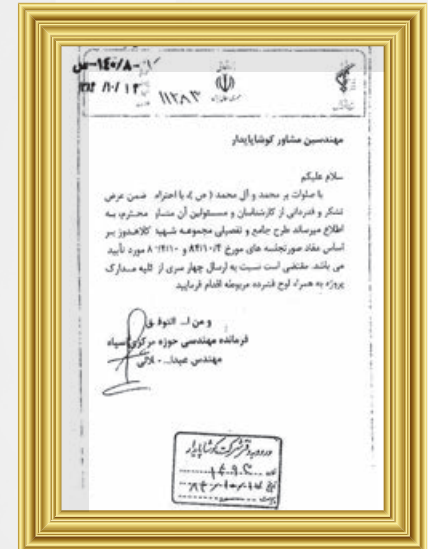 س-۱۴۰/۸-
۱۱۲۸۳
مهندسین مشاور کوشاپایدار
سلام علیکم
با صلوات بر محمد و آل محمد (ص) با احترام ضمن عرض
تشکر و قدردانی از کارشناسان و مسئولین آن مشاور محترم، به
اطلاع میرساند طرح جامع و تفصیلی مجموعه شهید کلاهدوز بر
اساس مفاد صورتجلسه های مورخ ۸۴/۱۰/۴ و مورد تأیید
می باشد. مقتضی است نسبت به ارسال چهار سری از کلیه مدارک
پروژه به همراه لوح فشرده مربوطه اقدام فرمایید
و من ا... التوفیق
فرمانده مهندسی حوزه مرکزی سپاه
مهندس عبدا...
ورود به دفتر شرکت کوشاپایدار